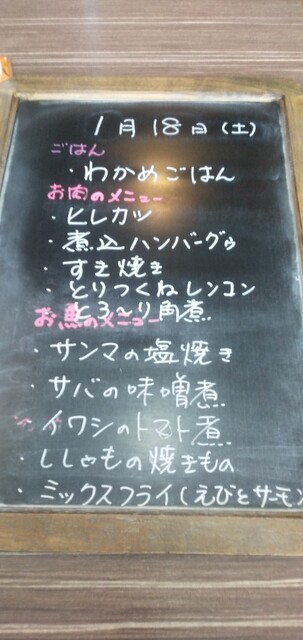 1月18日(土)
ごはん
・わかめごはん
お肉のメニュー
・ヒレカツ
・煮込ハンバーグゥ
・すき焼き
・とりつくねレンコン
・とろ〜り角煮
お魚のメニュー
・サンマの塩焼き
・サバの味噌煮
・イワシのトマト煮
・ししゃもの焼きもの
・ミックスフライ(えびとサーモン